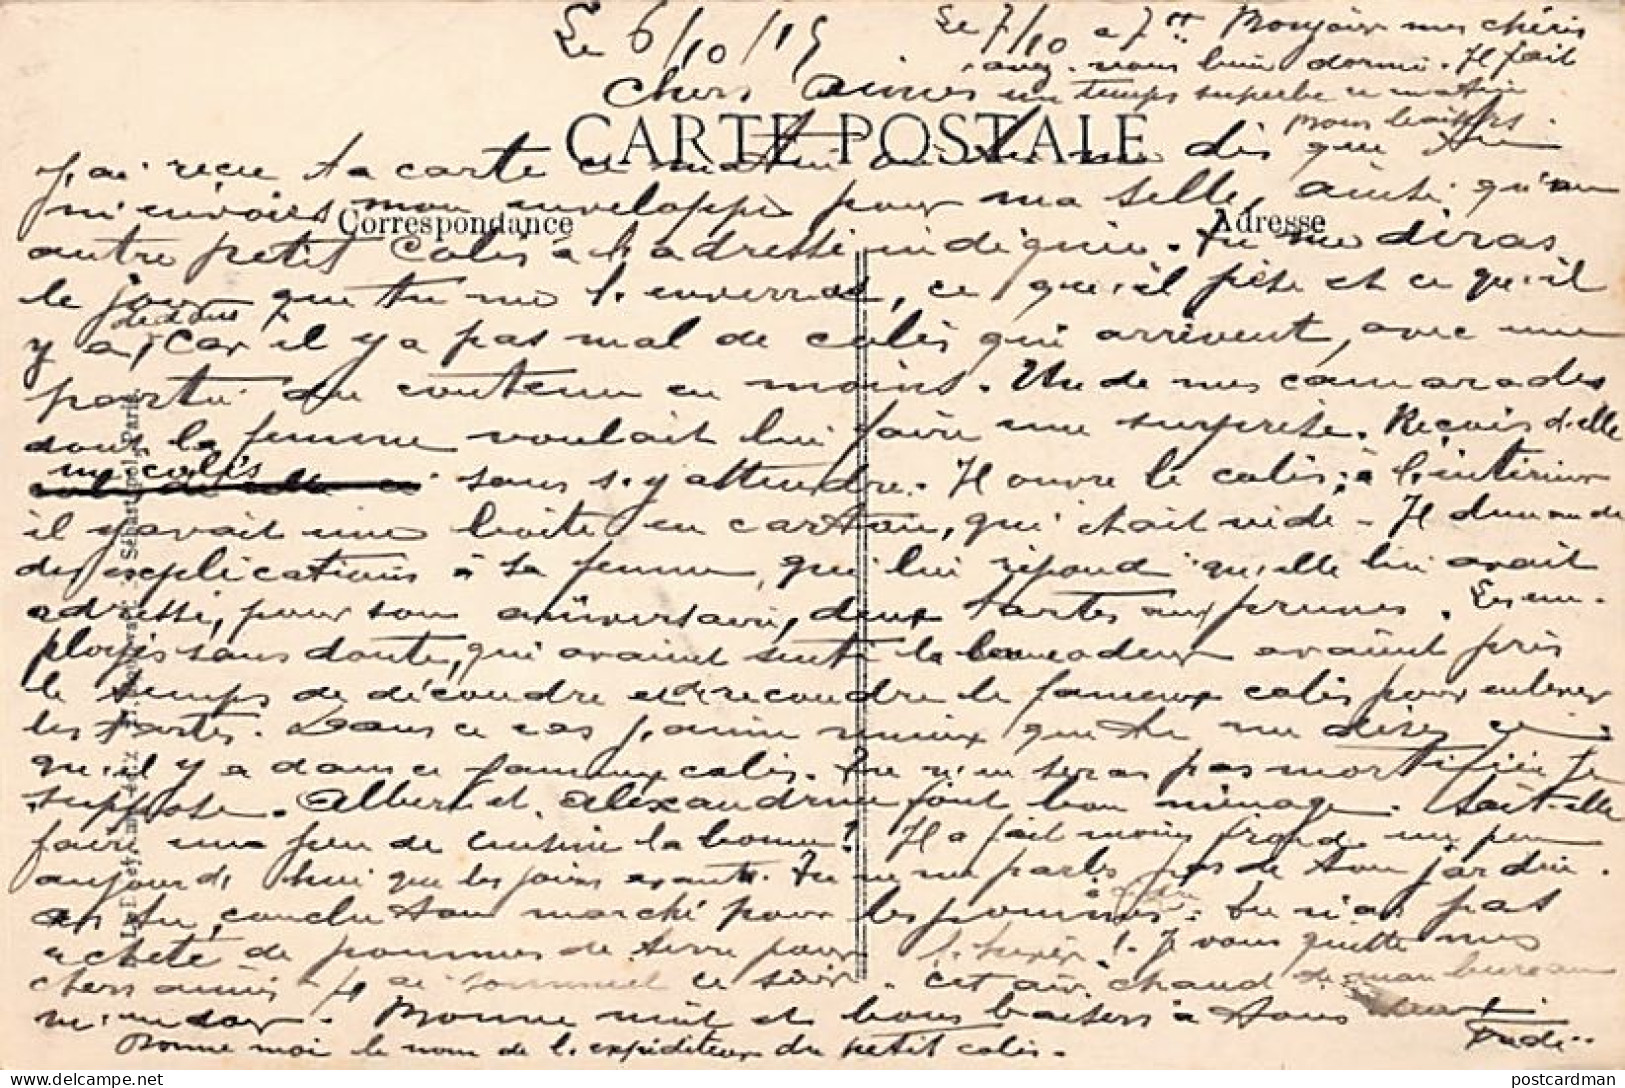 Le 6/10/15
Le 7/10 a 7 Bonjour mes chéris
avez vous bien dormi. Il fait
un temps superbe ce matin
bons baisers.
Chers aimés
CARTE POSTALE
J'ai reçu ta carte ce matin où tu me dis que tu
m'envoies mon enveloppe pour ma selle, ainsi qu'un
Correspondance
Adresse
autre petit colis à l'adresse indiquée. Tu me diras
le jour que tu me l'enverras, ce qu'il pèse et ce qu'il
y a dedans, car il y a pas mal de colis qui arrivent, avec une
partie du contenu en moins. Un de mes camarades
dont la femme voulait lui faire une surprise. Reçois d'elle
un colis sans s'y attendre. Il ouvre le colis; à l'intérieur
il y avait une boite en carton, qui était vide - Il demande
des explications à sa femme, qui lui répond qu'elle lui avait
adressé, pour son anniversaire, deux tartes aux prunes. Les em-
ployés sans doute, qui avaient senti la bonne odeur avaient pris
le temps de découdre et de recoudre le fameux colis pour enlever
les tartes. Dans ce cas j'aime mieux que tu me dises ce
qu'il y a dans ce fameux colis. Tu n'en seras pas mortifiée je
suppose. Albert et Alexandrine font bon ménage. Sait-elle
faire un peu de cuisine la bonne! Il a fait moins froid un peu
aujourd'hui que les jours avants. Tu ne me parles pas de ton jardin.
as tu conclu ton marché pour les pommes à
tu n'as pas
acheté de pommes de terre pour l'hiver! - Je vous quitte mes
chers aimés j'ai sommeil ce soir. Cet air chaud de mon bureau
m'endort. Bonne nuit et bons baisers à tous
Bonne moi le nom de l'expéditeur du petit colis.
postcardman